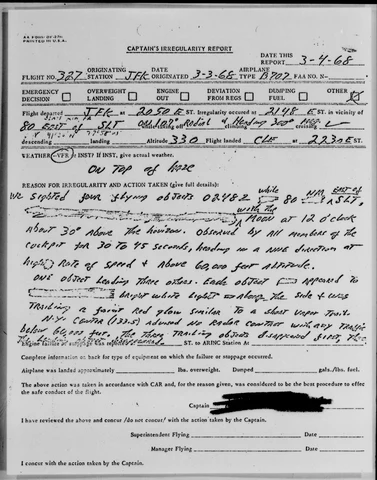 PRINTED IN U.S.A.
CAPTAIN'S IRREGULARITY REPORT
DATE THIS REPORT 3-4-68
FLIGHT NO. 327 ORIGINATING STATION JFK DATE ORIGINATED 3-3-68 AIRPLANE TYPE B707 FAA NO. N-
EMERGENCY DECISION OVERWEIGHT LANDING ENGINE OUT DEVIATION FROM REGS DUMPING FUEL OTHER
Flight departed JFK at 2050 E ST. Irregularity occured at 2148 E ST. in vicinity of
80 EAST of SLT 107° Radial & Heading 300° climbing L
descending landing Altitude 330 Flight landed CLE at 2230 E ST.
WEATHER: VFR or INST? If INST, give actual weather.
ON TOP of haze
REASON FOR IRREGULARITY AND ACTION TAKEN (give full details):
We Sighted four flying objects 0248Z while 80 EAST of SLT,
with the MOON at 12 O'clock
About 30° above the horizon. Observed by All members of the
cockpit for 30 to 45 seconds, heading in a NNE direction at
high Rate of Speed & Above 60,000 feet Altitude.
ONE object Leading three others. Each object Appeared to
bright white light Along the side & was
Trailing a faint Red glow similar to a short Vapor Trail.
N.Y. Center (133.5) advised No Radar contact with any Traffic
below 60,000 feet. The three Trailing objects disappeared first, then
ST. to ARINC Station At
Complete information on back for type of equipment on which the failure or stoppage occurred.
Airplane was landed approximately lbs. overweight. Dumped gals./lbs. fuel.
The above action was taken in accordance with CAR and, for the reason given, was considered to be the best procedure to effect
the safe conduct of the flight.
Captain
I have reviewed the above and concur/do not concur with the action taken by the Captain.
Superintendent Flying Date
Manager Flying Date
I concur with the action taken by the Captain.